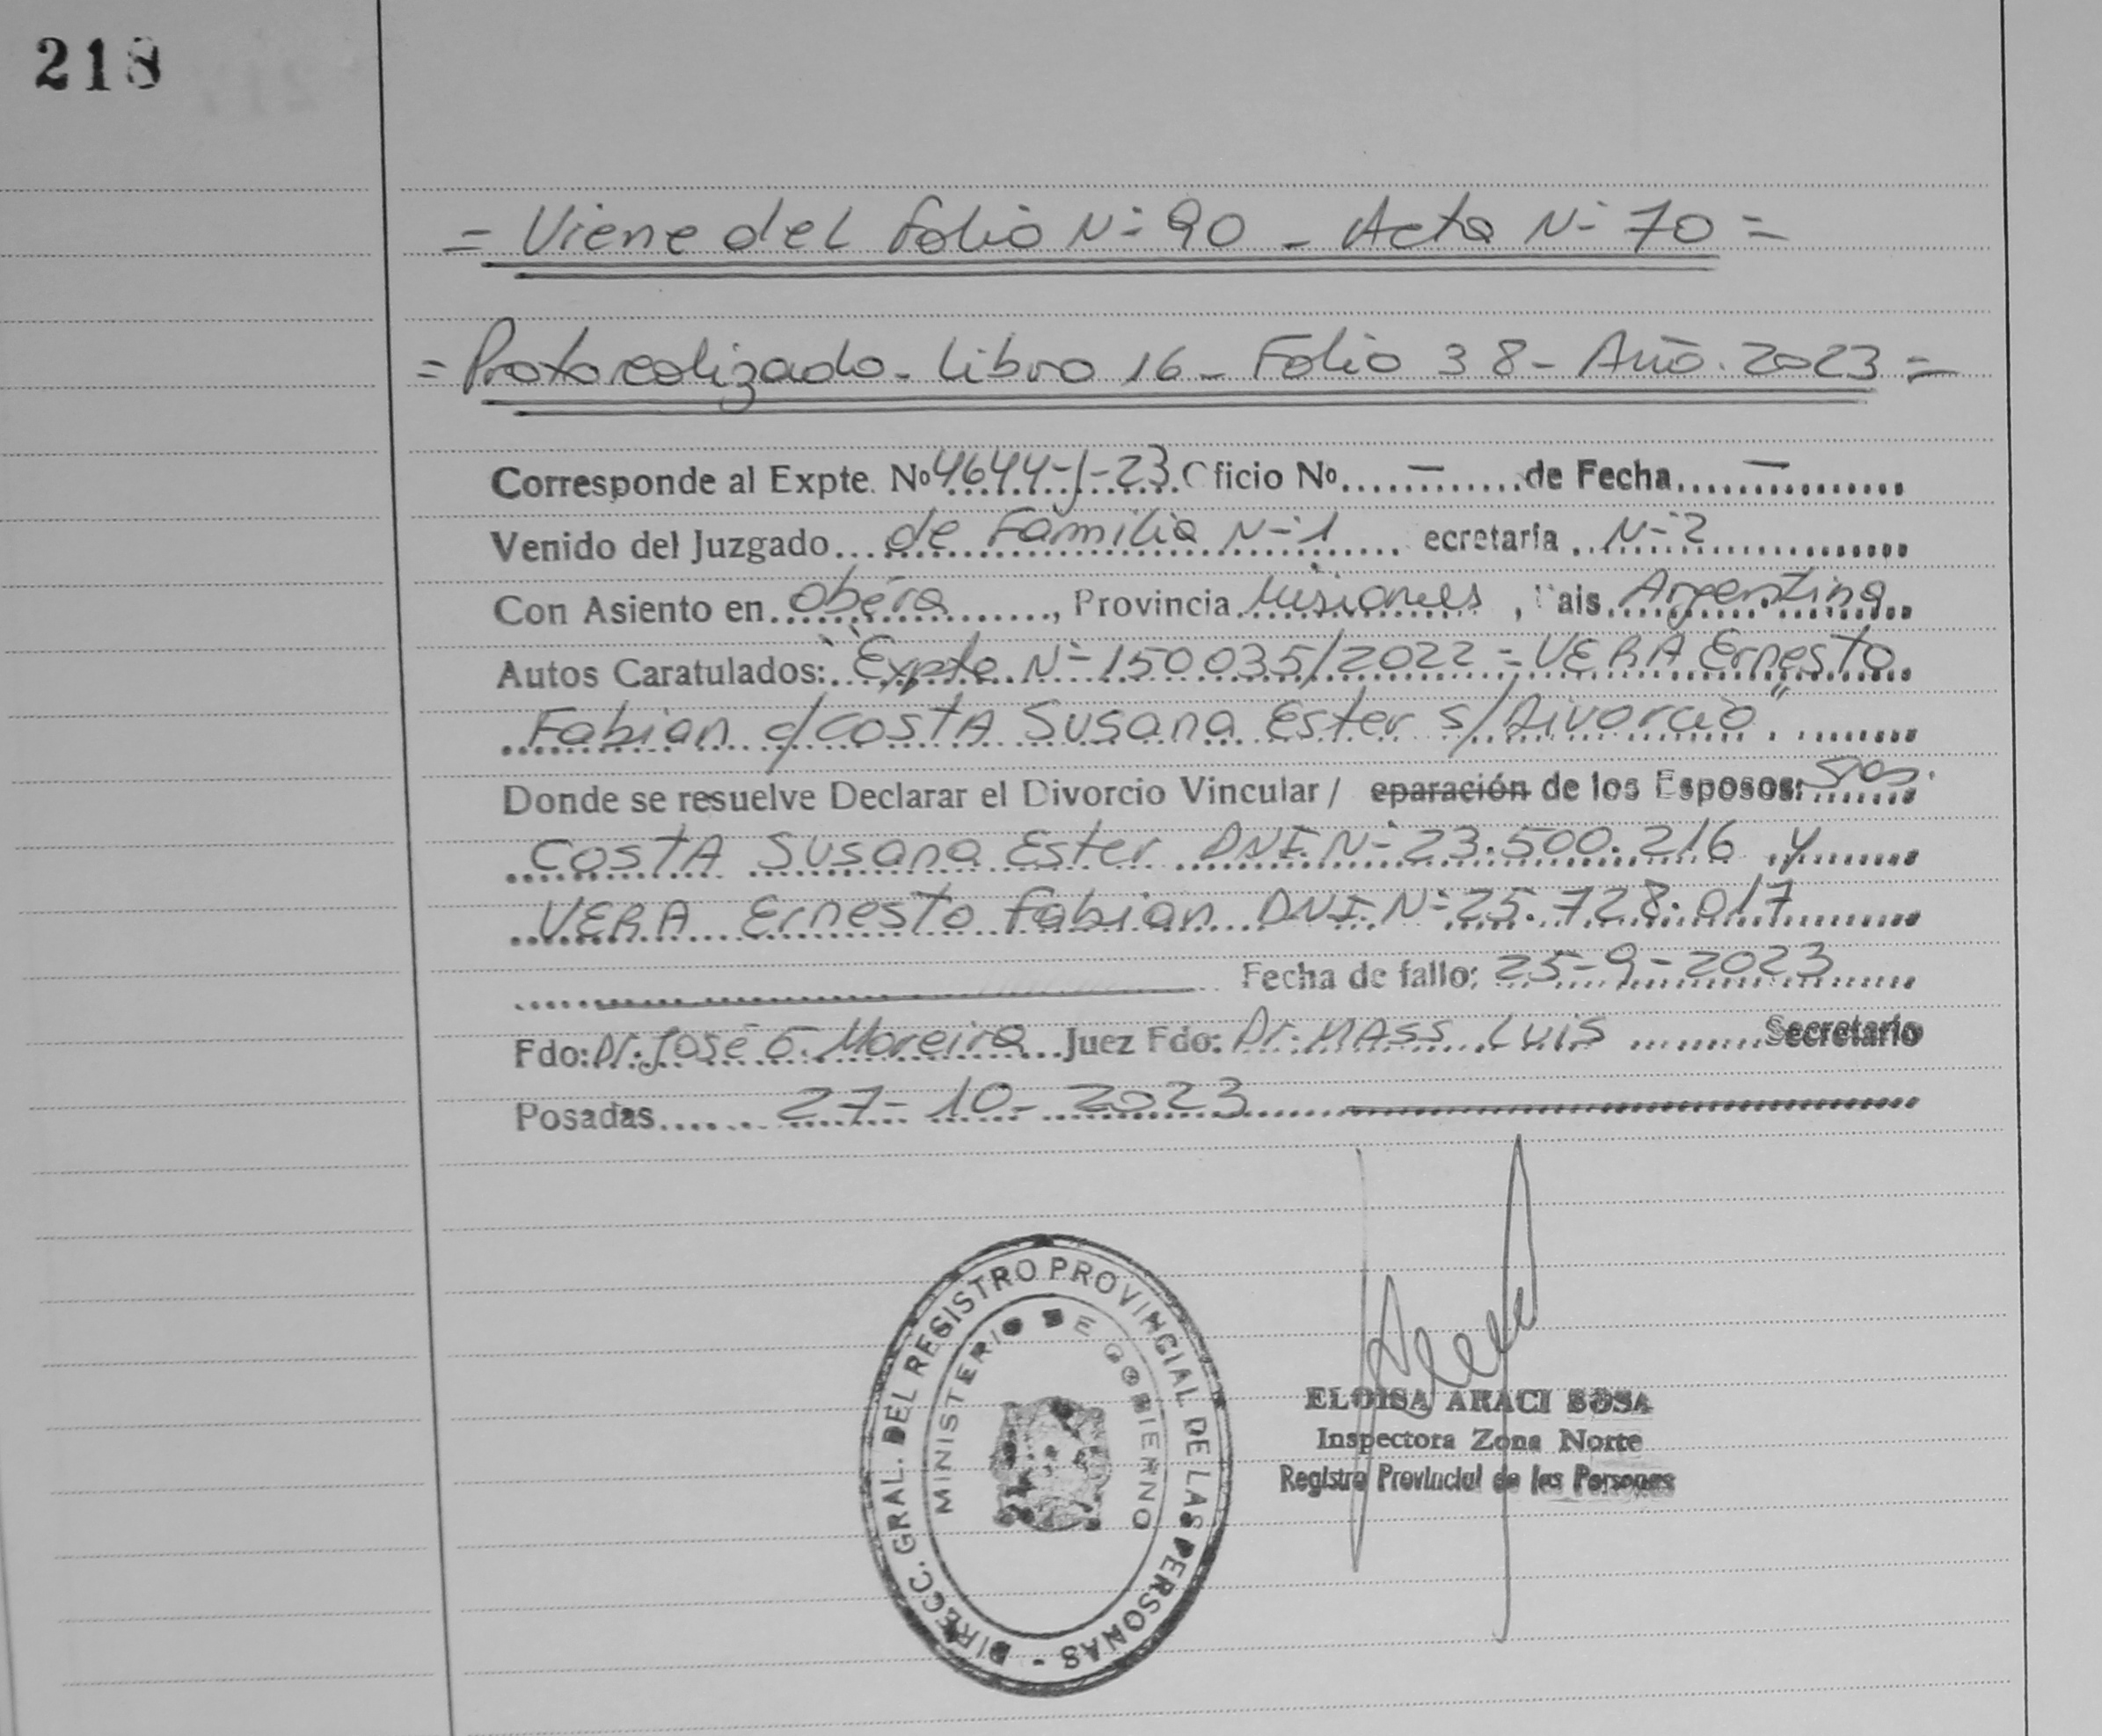 218
= Viene del folio N° 90 - Acta N° 70 =
= Protocolizado - libro 16 - Folio 38 - Año. 2023 =
Corresponde al Expte. Nº 4644-J-23 Oficio Nº ..... — ..... de Fecha ..... — .....
Venido del Juzgado ... de Familia N° 1 .... ecretaría .. N° 2 .....
Con Asiento en Oberá ....., Provincia Misiones , País Argentina
Autos Caratulados: "Expte N° 150035/2022 = VERA Ernesto
Fabian c/ COSTA Susana Ester s/ Divorcio"
Donde se resuelve Declarar el Divorcio Vincular / eparación de los Esposos: Sres.
COSTA Susana Ester DNI. N° 23.500.216 y
VERA Ernesto Fabian DNI. N° 25.728.017
Fecha de fallo: 25-9-2023
Fdo: Dr. José G. Moreira ... Juez Fdo: Dr. MASS Luis ..... Secretario
Posadas ..... 27-10-2023
DIRECC. GRAL. DEL REGISTRO PROVINCIAL DE LAS PERSONAS -
MINISTERIO DE GOBIERNO
ELOISA ARACI SOSA
Inspectora Zona Norte
Registro Provincial de las Personas